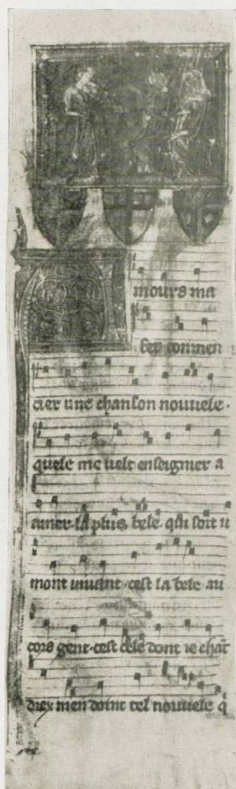 mours ma
bep conmen
cier une chanson nouuele.
quele me uelt enseignier a
amer. la plus bele. qui soit u
mont uiuant. cest la bele au
cors gent. cest cele dont ie chāt
diex men doint tel nouuele q̄